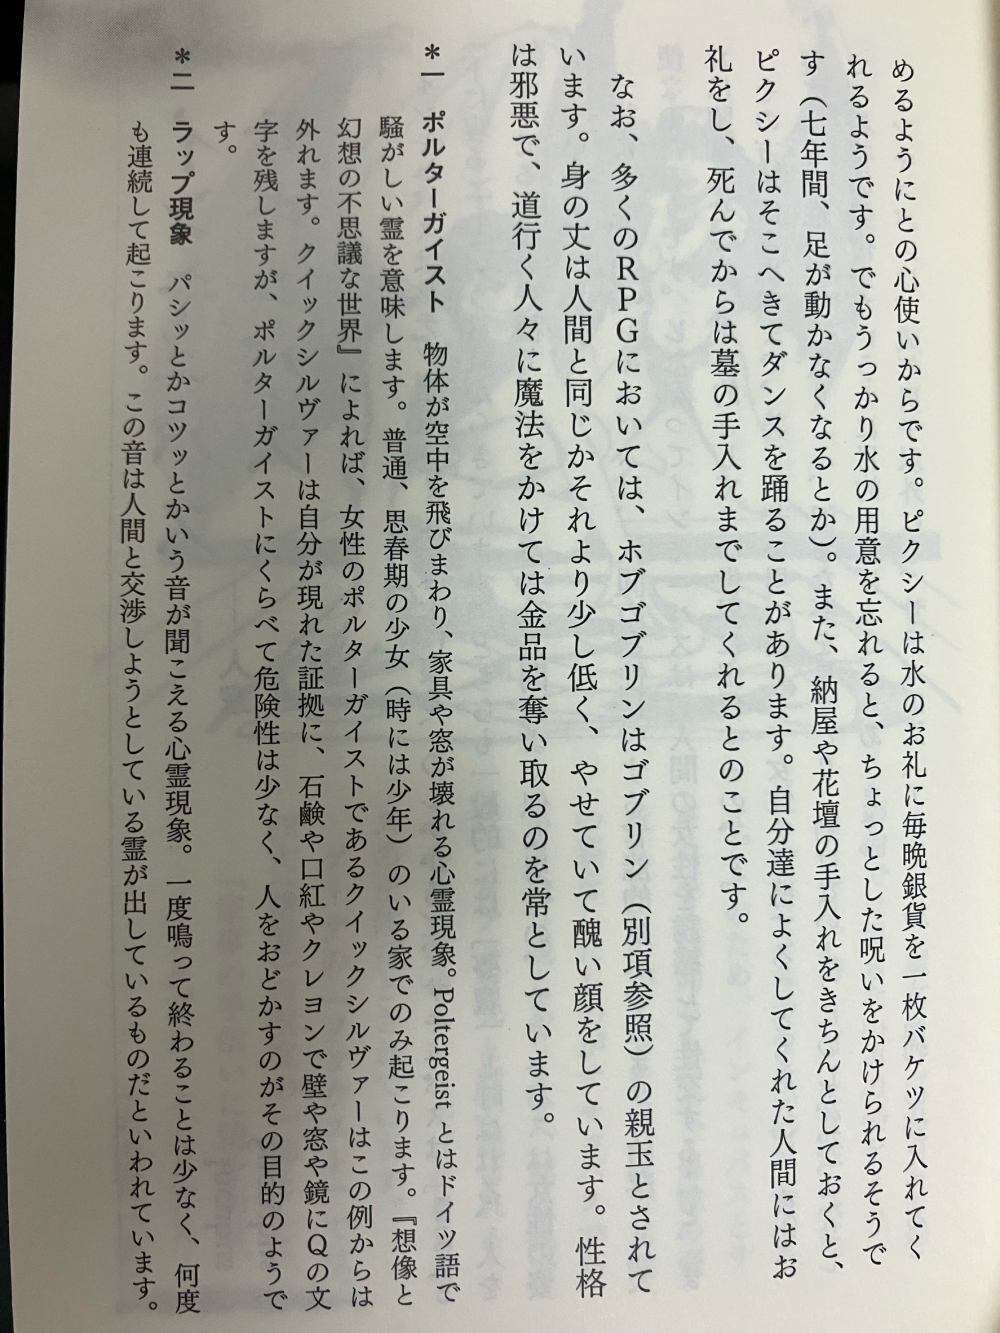 めるようにとの心使いからです。ピクシーは水のお礼に毎晩銀貨を一枚バケツに入れてく
れるようです。でもうっかり水の用意を忘れると、ちょっとした呪いをかけられるそうで
す（七年間、足が動かなくなるとか）。また、納屋や花壇の手入れをきちんとしておくと、
ピクシーはそこへきてダンスを踊ることがあります。自分達によくしてくれた人間にはお
礼をし、死んでからは墓の手入れまでしてくれるとのことです。
なお、多くのRPGにおいては、ホブゴブリンはゴブリン（別項参照）の親玉とされて
います。身の丈は人間と同じかそれより少し低く、やせていて醜い顔をしています。性格
は邪悪で、道行く人々に魔法をかけては金品を奪い取るのを常としています。
＊一 ポルターガイスト 物体が空中を飛びまわり、家具や窓が壊れる心霊現象。Poltergeist とはドイツ語で
騒がしい霊を意味します。普通、思春期の少女（時には少年）のいる家でのみ起こります。『想像と
幻想の不思議な世界』によれば、女性のポルターガイストであるクイックシルヴァーはこの例からは
外れます。クイックシルヴァーは自分が現れた証拠に、石鹸や口紅やクレヨンで壁や窓や鏡にQの文
字を残しますが、ポルターガイストにくらべて危険性は少なく、人をおどかすのがその目的のようで
す。
＊二 ラップ現象 パシッとかコツッとかいう音が聞こえる心霊現象。一度鳴って終わることは少なく、何度
も連続して起こります。この音は人間と交渉しようとしている霊が出しているものだといわれています。